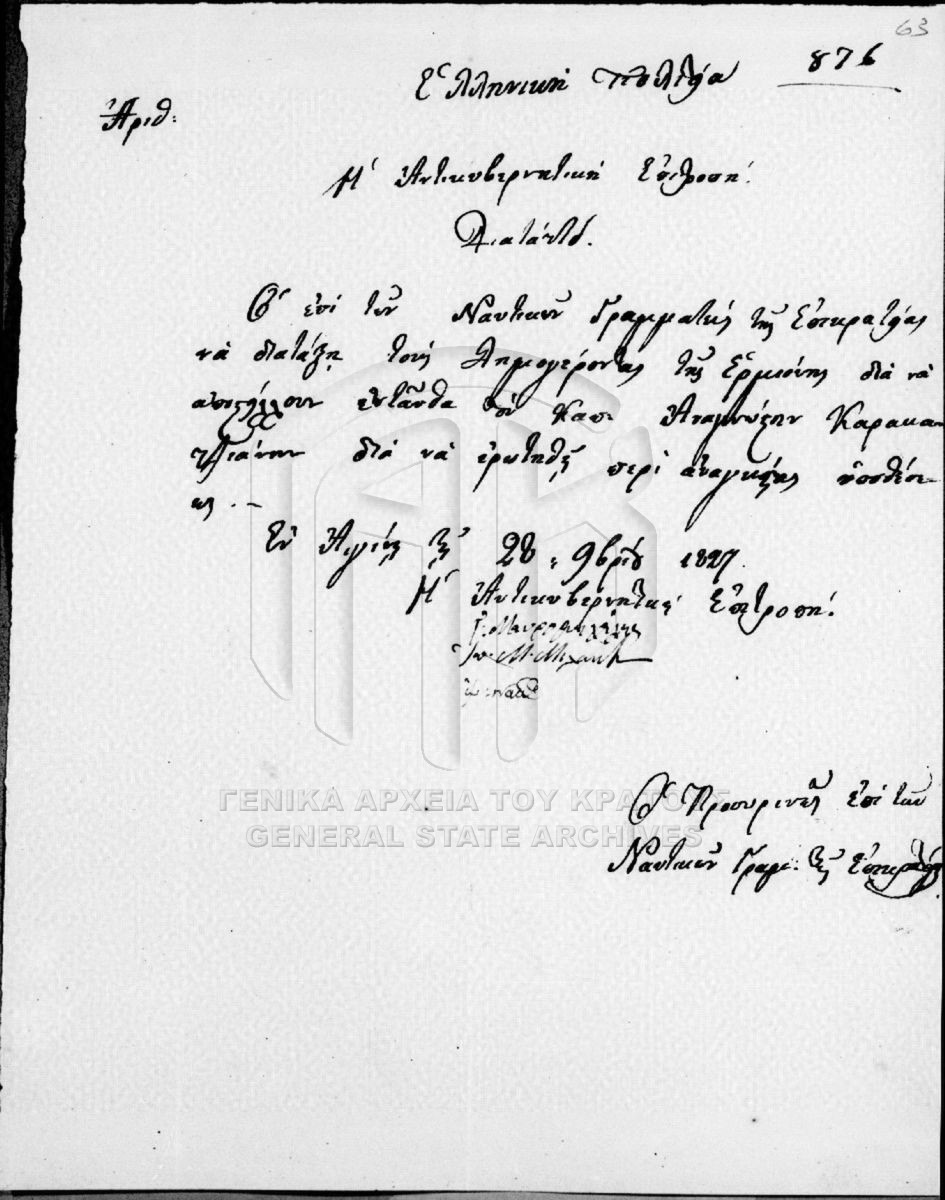 63
876
Ἑλληνικὴ Πολιτεία
Ἀριθ:
Ἡ Ἀντικυβερνητικὴ Ἐπιτροπὴ.
Διατάττει.
Ὁ ἐπὶ τῶν Ναυτικῶν Γραμματεὺς τῆς Ἐπικρατείας
νὰ διατάξῃ τοὺς Δημογέροντας τῆς Ἑρμιόνης διὰ νὰ
ἀποστείλουν ἐνταῦθα τὸν Καπ. Ἀναγνώστην Καρακα-
τζιάνην διὰ νὰ ἐρωτηθῇ περὶ ἀναγκαίας ὑποθέσε-
ως. —
Ἐν Αἰγίνῃ τῇ 28: 9βρίου 1827.
Ἡ Ἀντικυβερνητικὴ Ἐπιτροπὴ.
Γ. Μαυρομιχάλης
Ἰω. Μ. Μιλαήτης
ΓΕΝΙΚΑ ΑΡΧΕΙΑ ΤΟΥ ΚΡΑΤΟΥΣ
GENERAL STATE ARCHIVES
Ὁ Προσωρινὸς ἐπὶ τῶν
Ναυτικῶν Γραμ: τῆς Ἐπικρατείας